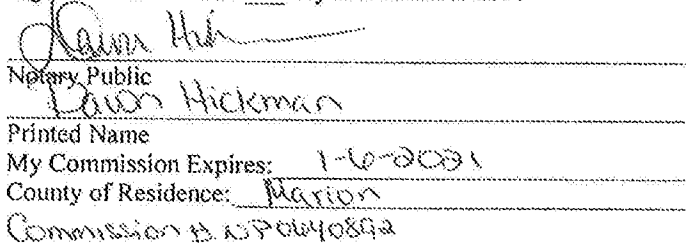 Notary Public
Dawn Hickman
Printed Name
My Commission Expires: 1-6-2021
County of Residence: Marion
Commission # NP0640892